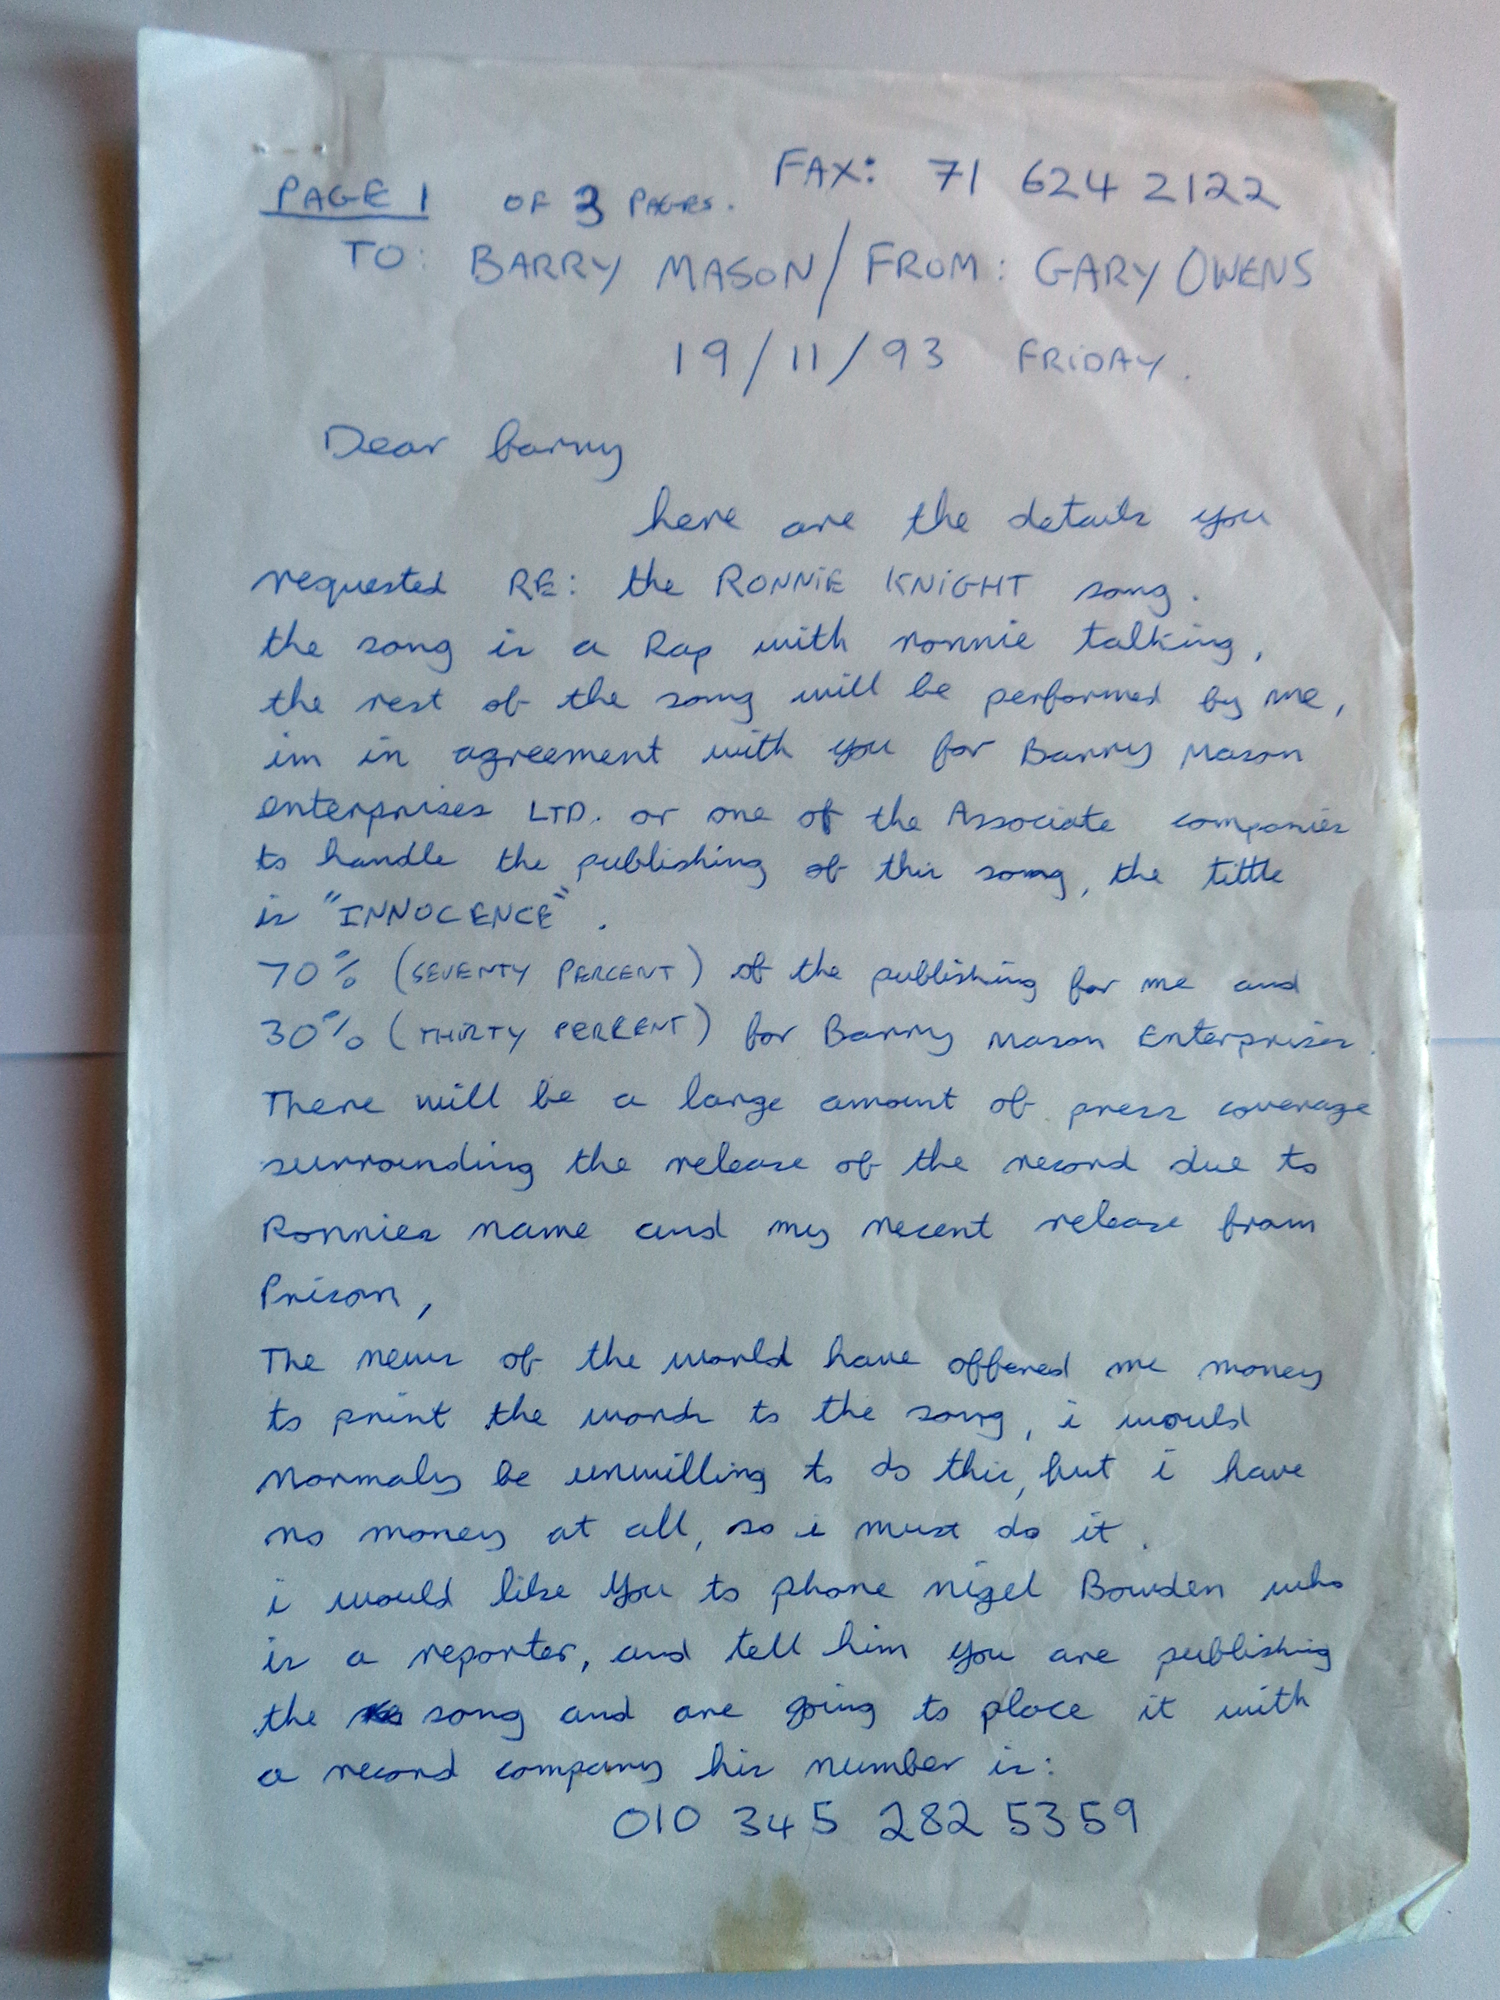 FAX: 71 624 2122
PAGE 1 OF 3 PAGES.
TO: BARRY MASON / FROM: GARY OWENS
19/11/93 FRIDAY.
Dear barry
here are the details you
requested RE: the RONNIE KNIGHT song.
the song is a Rap with ronnie talking,
the rest of the song will be performed by me,
im in agreement with you for Barry Mason
enterprises LTD. or one of the Associate companies
to handle the publishing of this song, the tittle
is "INNOCENCE".
70% (SEVENTY PERCENT) of the publishing for me and
30% (THIRTY PERCENT) for Barry Mason Enterprises.
There will be a large amount of press coverage
surrounding the release of the record due to
Ronnies name and my recent release from
Prison,
The news of the world have offered me money
to print the words to the song, i would
normaly be unwilling to do this, but i have
no money at all, so i must do it.
i would like you to phone nigel Bowden who
is a reporter, and tell him you are publishing
the song and are going to place it with
a record company his number is:
010 345 282 5359